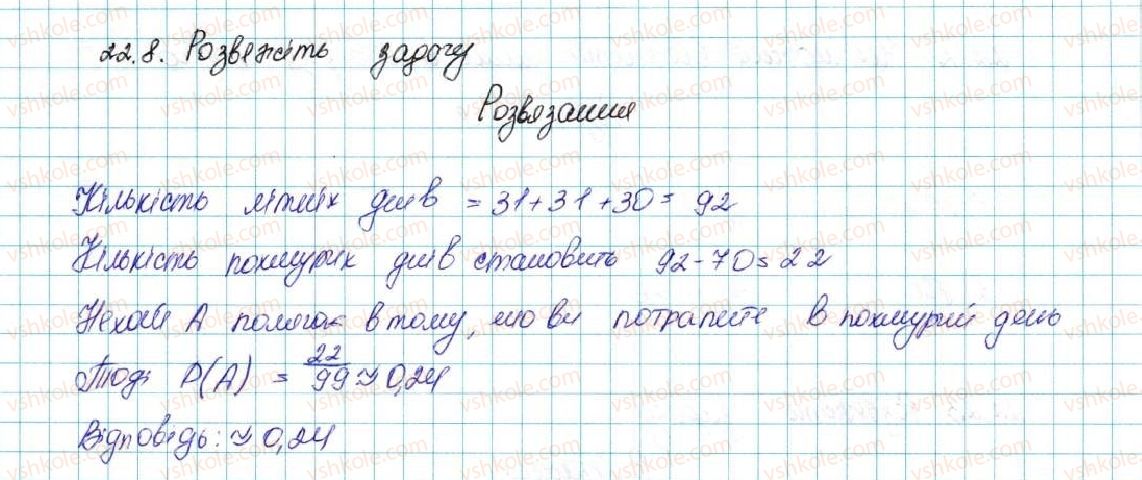 22.8. Розвяжіть задачу
Розвязання
Кількість літніх днів = 31+31+30= 92
Кількість похмурих днів становить 92-70= 22
Нехай А полягає в тому, що ви потрапите в похмурий день
Тоді P(A) = 22/99 ≈ 0,24
Відповідь: ≈ 0,24